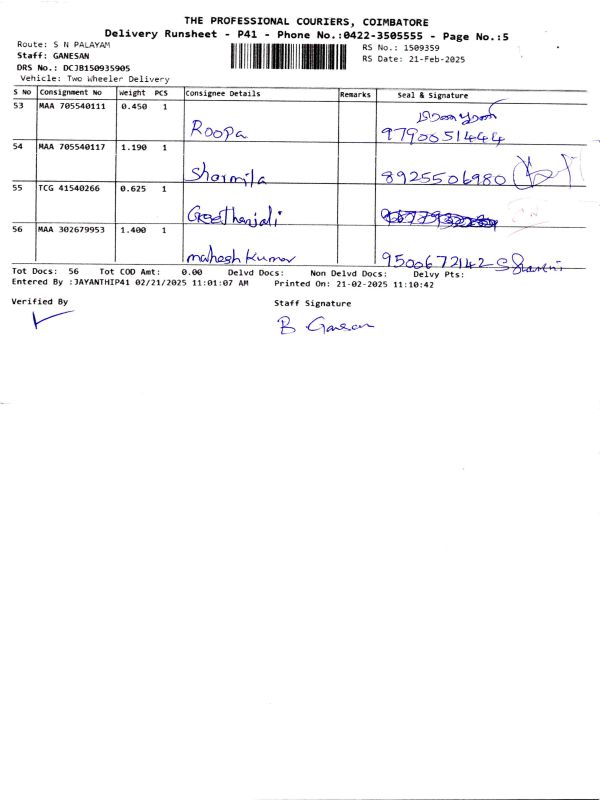 THE PROFESSIONAL COURIERS, COIMBATORE
Delivery Runsheet - P41 - Phone No.:0422-3505555 - Page No.:5
Route: S N PALAYAM
Staff: GANESAN
DRS No.: DCJB150935905
Vehicle: Two Wheeler Delivery
RS No.: 1509359
RS Date: 21-Feb-2025
S No Consignment No Weight PCS Consignee Details Remarks Seal & Signature
53 MAA 705540111 0.450 1 Roopa 9790051444
54 MAA 705540117 1.190 1 Sharmila 8925506980
55 TCG 41540266 0.625 1 Geethanjali
56 MAA 302679953 1.400 1 mahesh Kumar 9500672142
Tot Docs: 56 Tot COD Amt: 0.00 Delvd Docs: Non Delvd Docs: Delvy Pts:
Entered By :JAYANTHIP41 02/21/2025 11:01:07 AM Printed On: 21-02-2025 11:10:42
Verified By Staff Signature
B Ganesan